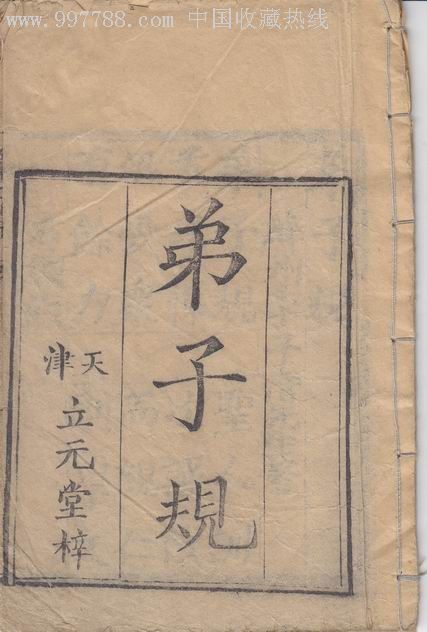 www.997788.com 中国收藏热线
弟子規
天津
立元堂梓